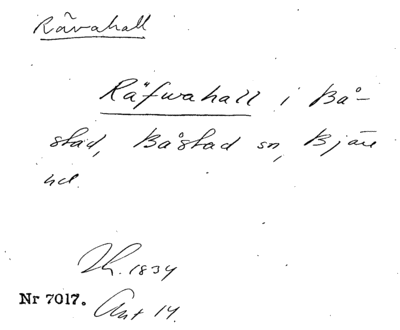 Rävahall
Räfwahall i Bå-
stad, Båstad sn, Bjäre
hd.
Th. 1834
Nr 7017. Ant 14.